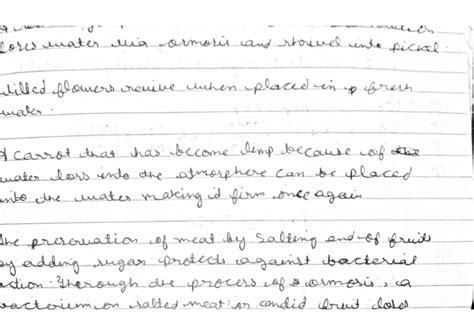 loses water via osmosis and shrivel into pickel.
wilted flowers revive when placed in fresh
water.
A carrot that has become limp because of
water loss into the atmosphere can be placed
into the water making it firm once again
The preservation of meat by salting and of fruit
by adding sugar protects against bacterial
action. Through the process of osmosis, a
bacterium on salted meat or candid fruit loses